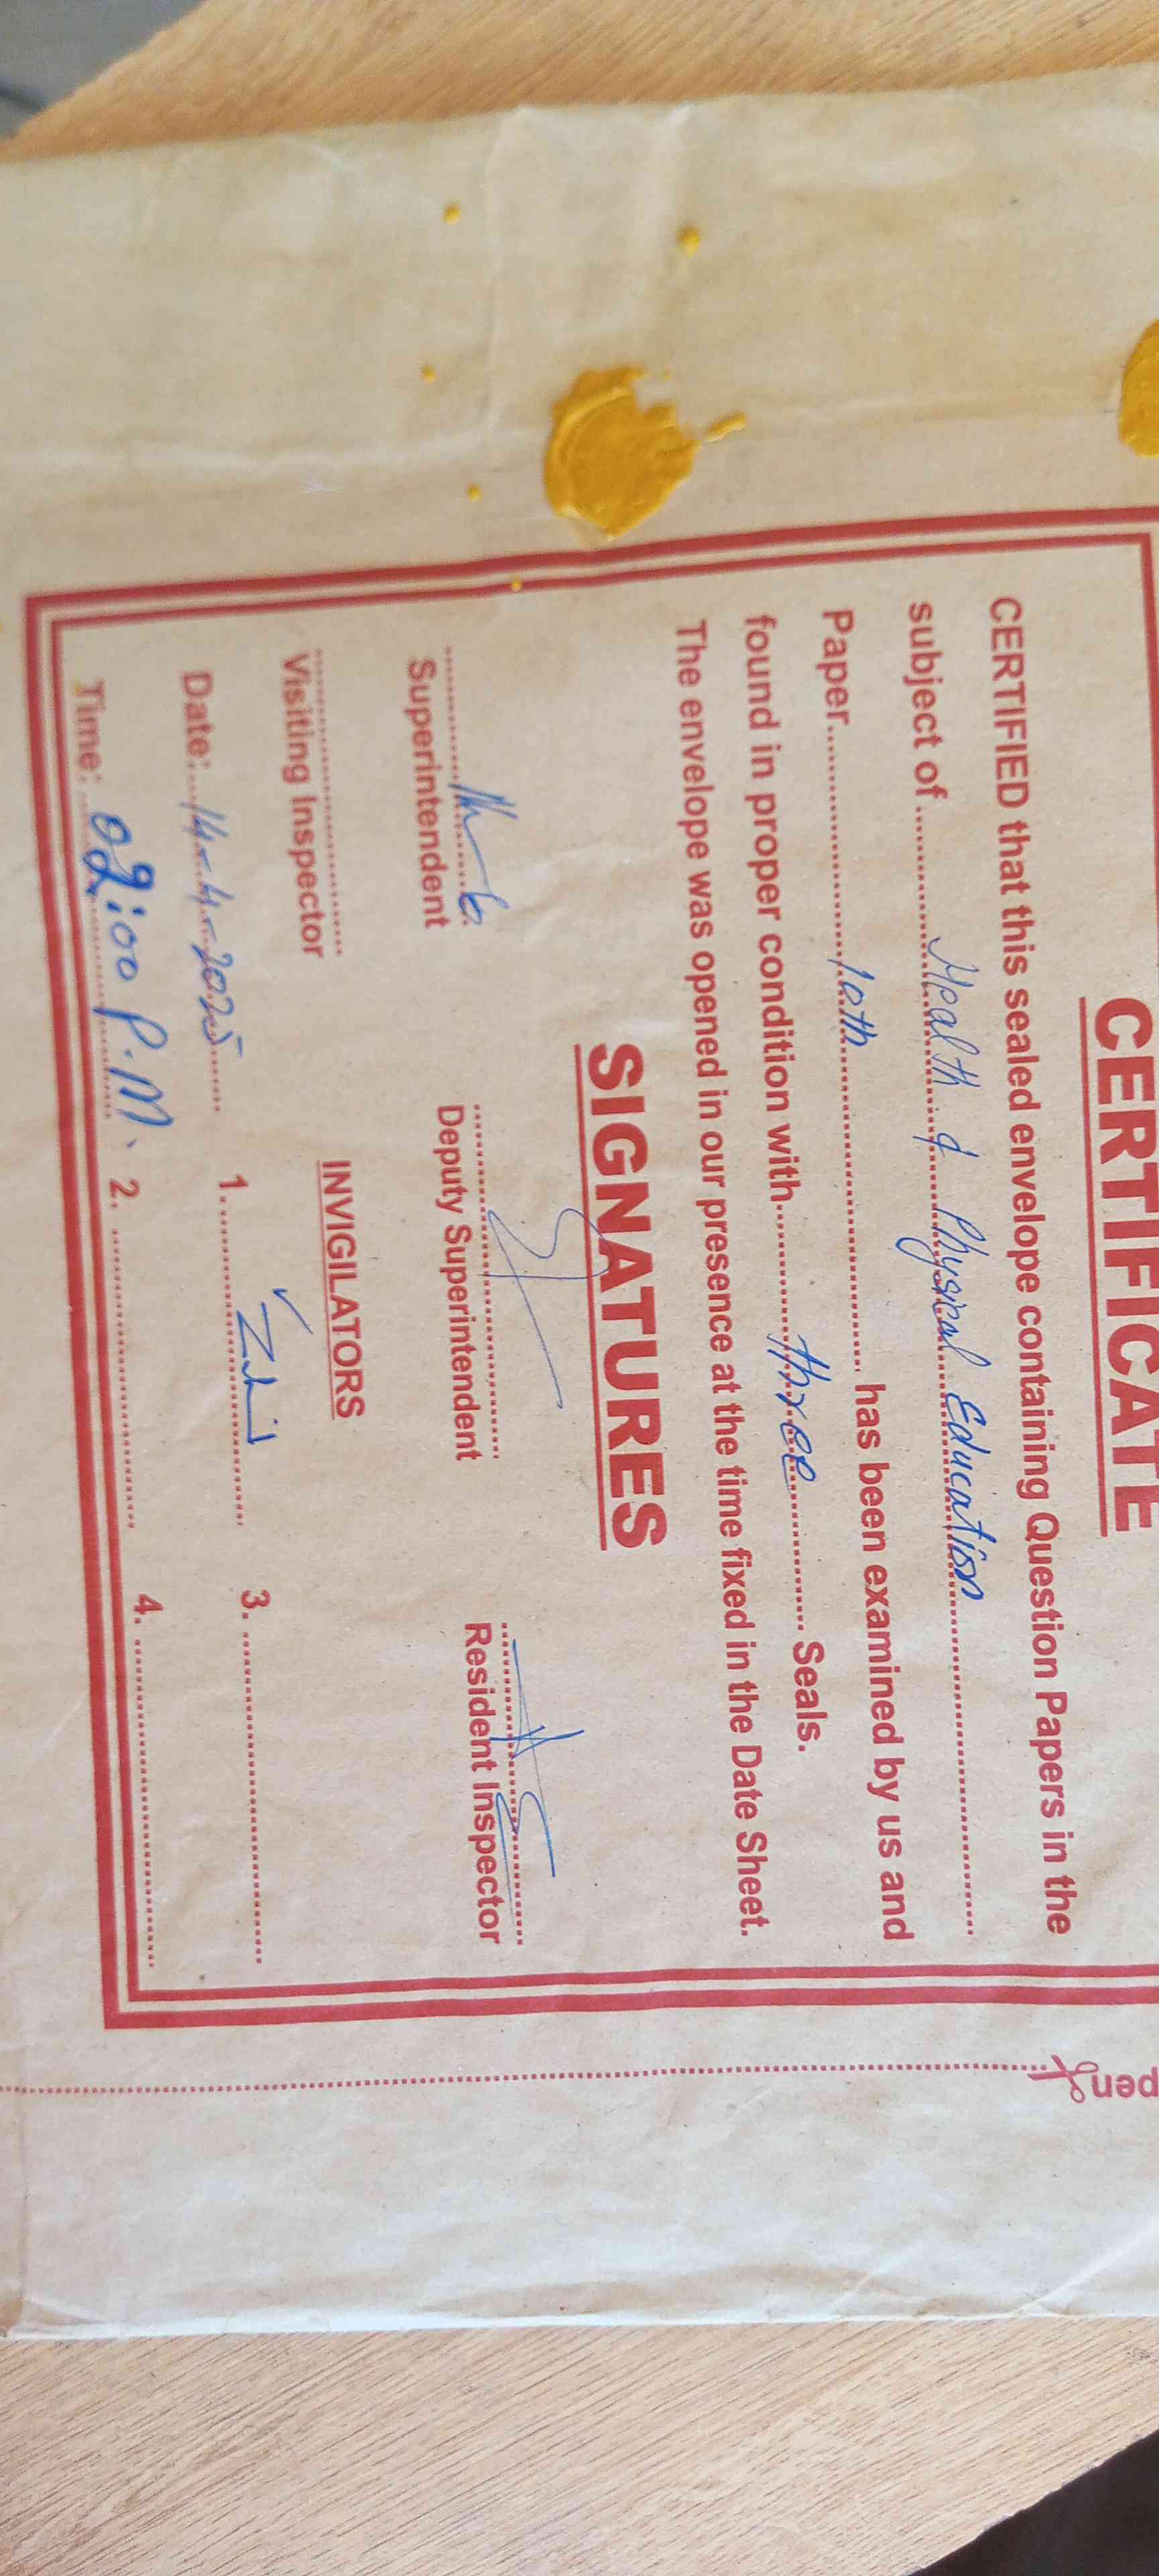 CERTIFICATE
CERTIFIED that this sealed envelope containing Question Papers in the
subject of Health & Physical Education
Paper 10th has been examined by us and
found in proper condition with three Seals.
The envelope was opened in our presence at the time fixed in the Date Sheet.
SIGNATURES
Superintendent Deputy Superintendent Resident Inspector
Visiting Inspector INVIGILATORS
Date: 14-4-2025 1. 3.
Time: 02:00 P.M. 2. 4.
pen